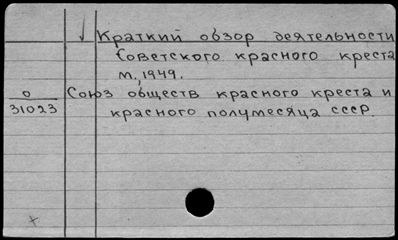 Краткий обзор деятельности
Советского красного креста
М., 1949.
О
31023
Союз обществ красного креста и
красного полумесяца СССР.